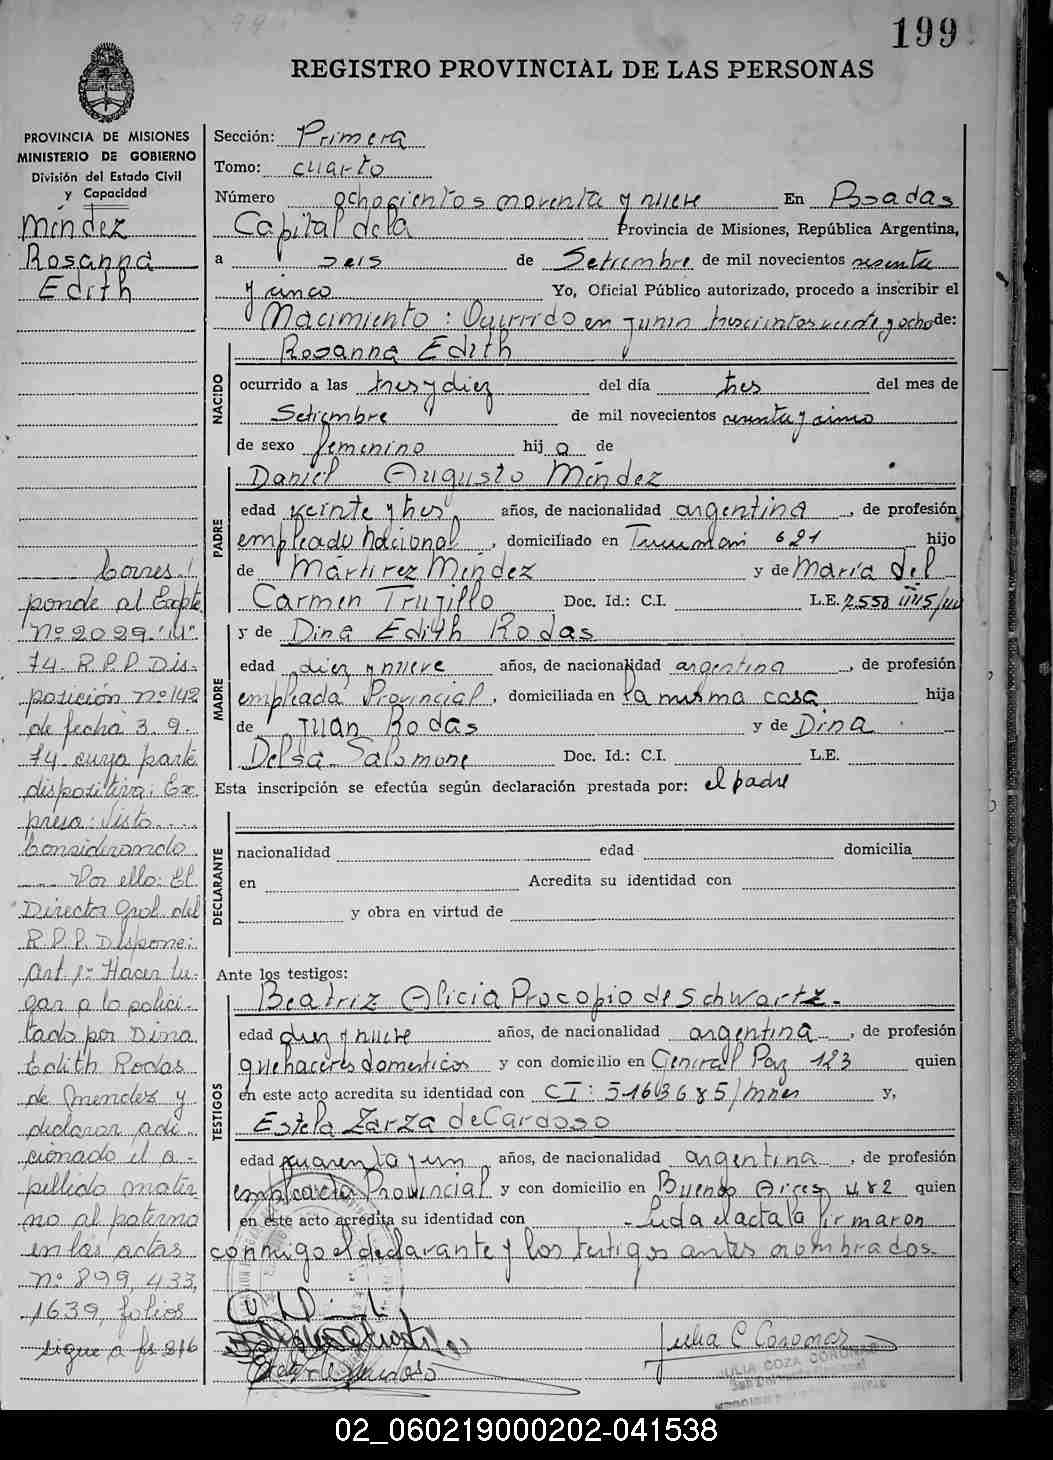 199
REGISTRO PROVINCIAL DE LAS PERSONAS
PROVINCIA DE MISIONES
MINISTERIO DE GOBIERNO
División del Estado Civil
y Capacidad
Méndez
Rosanna
Edith
Corres
ponde al Expte
Nº 2029 "M"
74 - R.P.P. Dis-
posición Nº 142
de fecha 3.9.
74 cuya parte
dispositiva: Ex
presa: Visto....
Considerando
.... Por ello: El
Director Gral del
R.P.P. Dispone:
Art 1º Hacer lu-
gar a lo solici-
tado por Dina
Edith Rodas
de Mendez y
declarar adi
cionado el a-
pellido mater
no al paterno
en las actas
nº 899, 433,
1639, folios
sigue a fs 816
Sección: Primera
Tomo: cuarto
Número ochocientos noventa y nueve En Posadas
Capital de la Provincia de Misiones, República Argentina,
a seis de Setiembre de mil novecientos sesenta
y cinco Yo, Oficial Público autorizado, procedo a inscribir el
Nacimiento: Ocurrido en Junin trescientos veinte y ocho de:
Rosanna Edith
NACIDO
ocurrido a las tres y diez del día tres del mes de
Setiembre de mil novecientos sesenta y cinco
de sexo femenino hij a de
PADRE
Daniel Augusto Méndez
edad veinte y tres años, de nacionalidad argentina, de profesión
empleado nacional, domiciliado en Tucuman 621 hijo
de Mártirez Méndez y de María del
Carmen Trujillo Doc. Id.: C.I. L.E. 7.550
y de Dina Edith Rodas
MADRE
edad diez y nueve años, de nacionalidad argentina, de profesión
empleada Provincial, domiciliada en la misma casa hija
de Juan Rodas y de Dina
Delsa Salomone Doc. Id.: C.I. L.E.
Esta inscripción se efectúa según declaración prestada por: el padre
DECLARANTE
nacionalidad edad domicilia
en Acredita su identidad con
y obra en virtud de
Ante los testigos:
TESTIGOS
Beatriz Alicia Procopio de Schwartz.
edad diez y nueve años, de nacionalidad argentina, de profesión
quehaceres domesticos y con domicilio en General Paz 123 quien
en este acto acredita su identidad con CI: y,
Estela Zarza de Cardoso
edad cuarenta y un años, de nacionalidad argentina, de profesión
empleada Provincial y con domicilio en Buenos Aires 482 quien
en este acto acredita su identidad con - Leida el acta la firmaron
conmigo el declarante y los testigos antes nombrados.
Julia C Coronas
JULIA COZA CORONAS
02_060219000202-041538